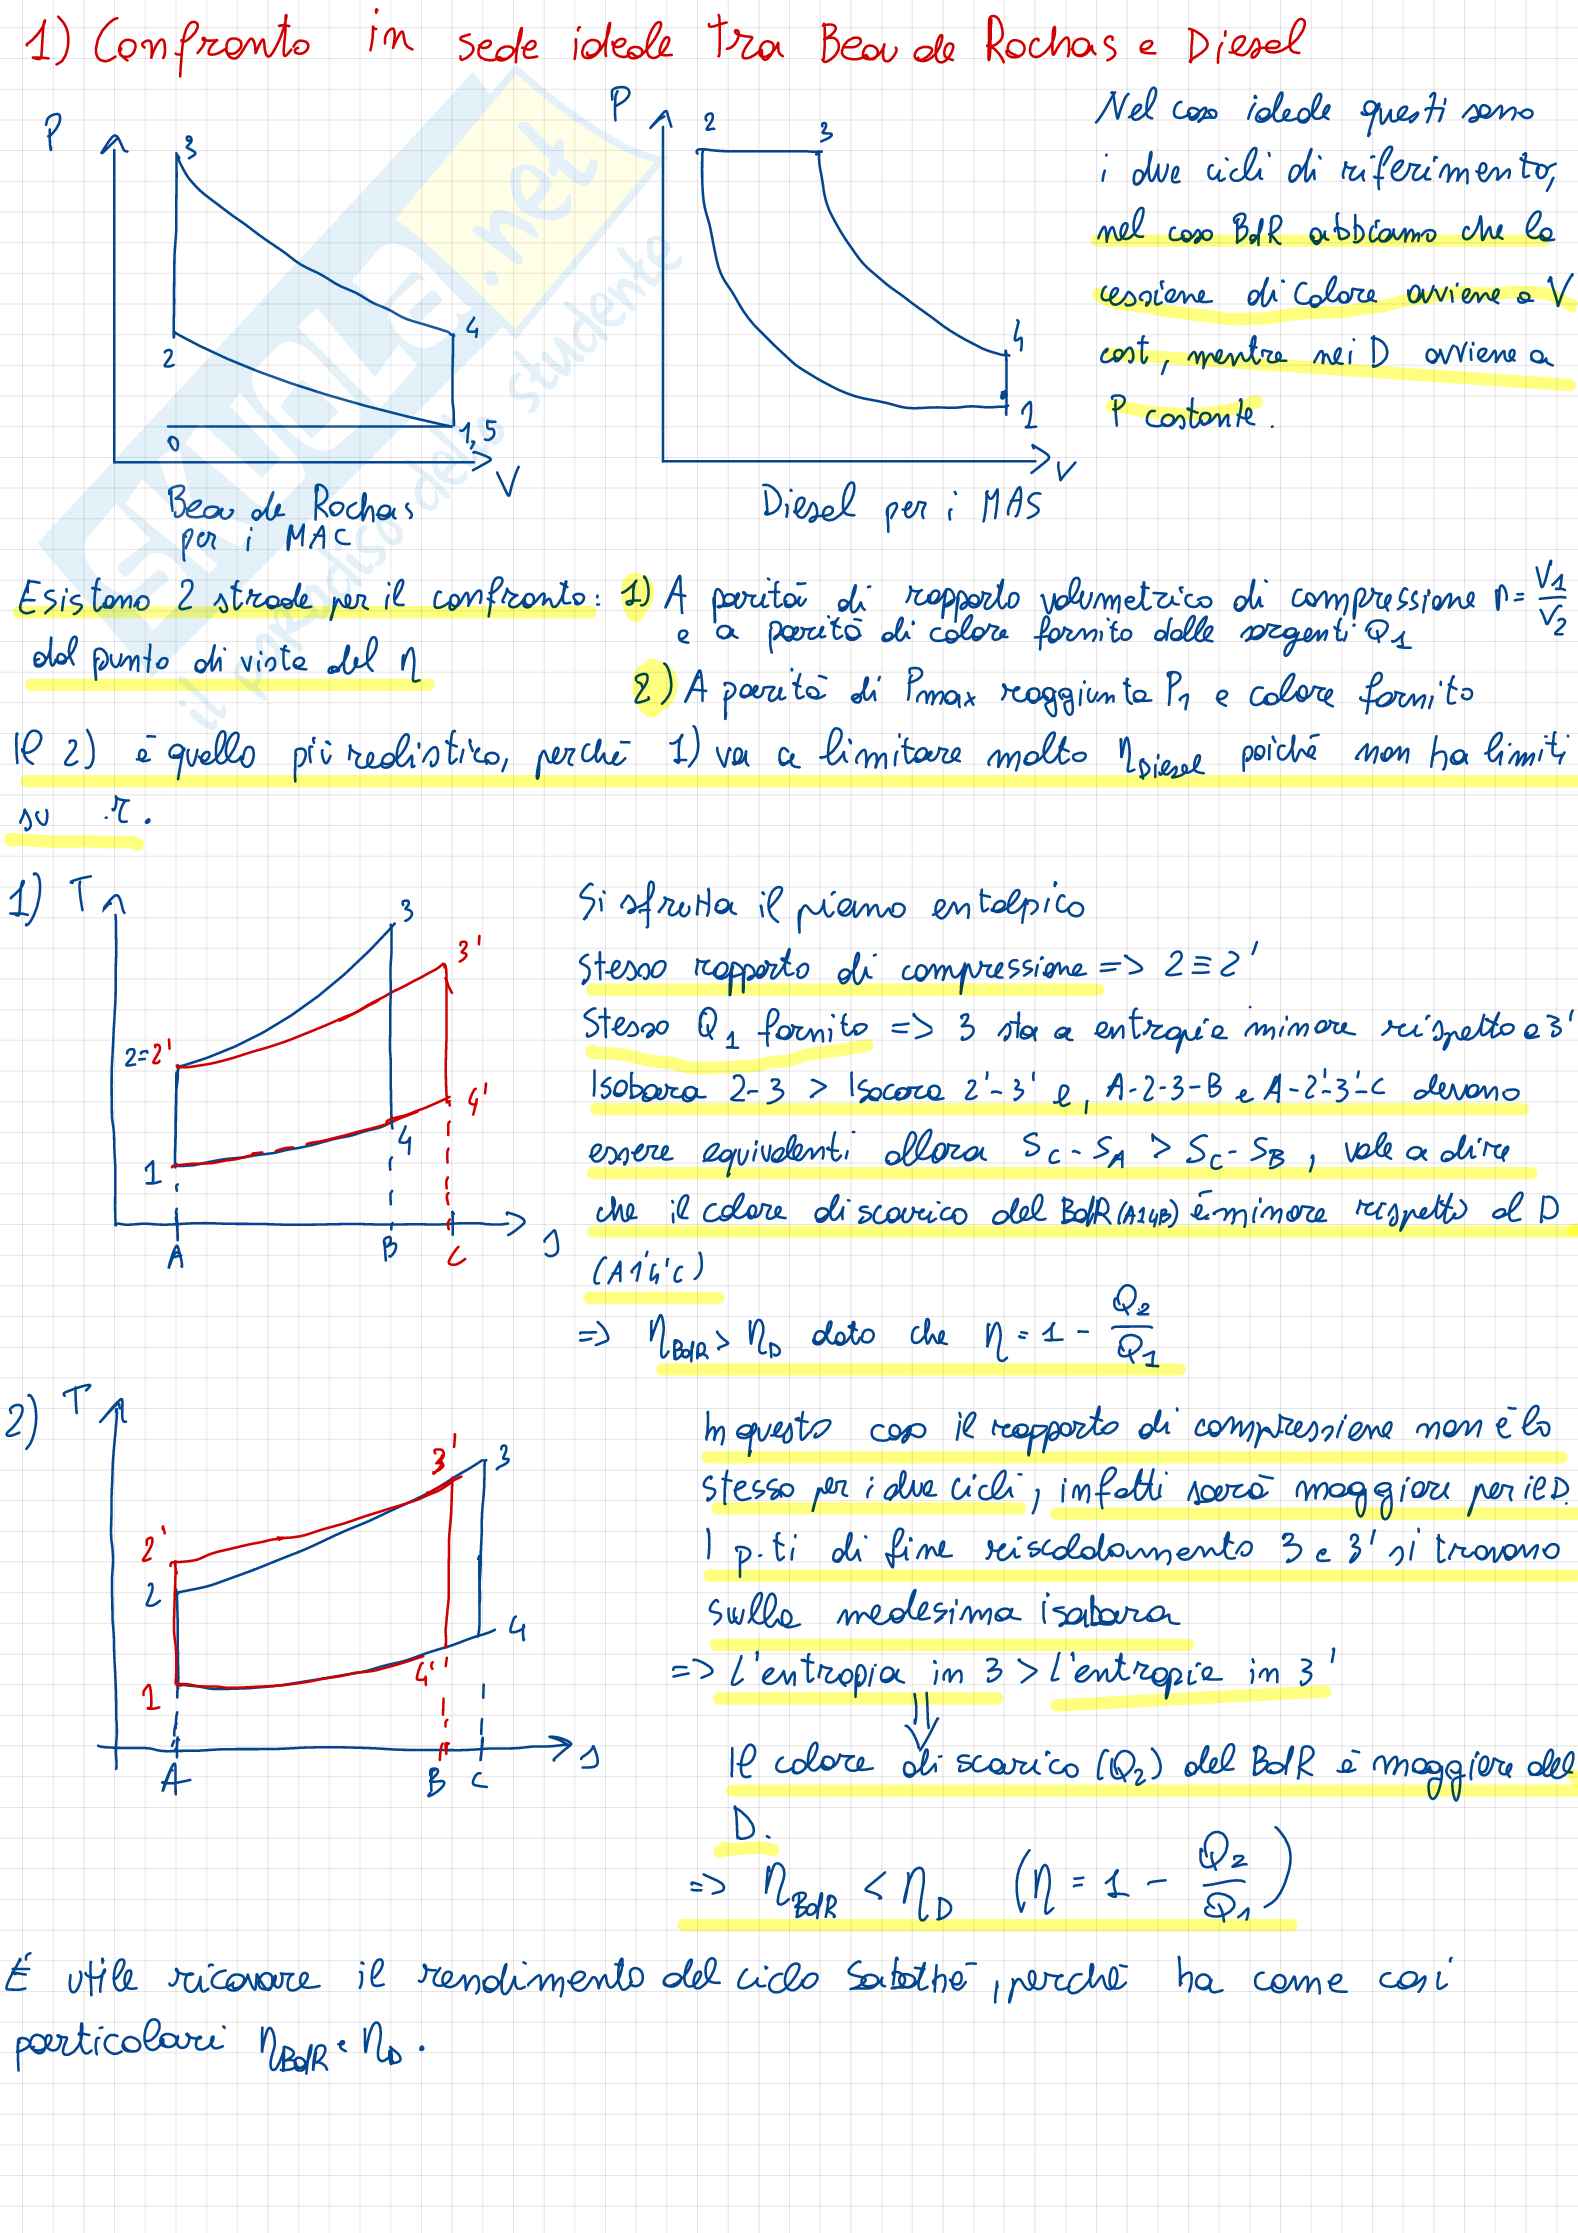 1) Confronto in sede ideale tra Beau de Rochas e Diesel
P
3
2
4
0
1,5
V
Beau de Rochas
per i MAC
P
2
3
4
1
V
Diesel per i MAS
Nel caso ideale questi sono
i due cicli di riferimento,
nel caso BdR abbiamo che la
cessione di calore avviene a V
cost, mentre nei D avviene a
P costante.
Esistono 2 strade per il confronto:
dal punto di vista del η
1) A parità di rapporto volumetrico di compressione r = V1/V2
e a parità di calore fornito dalle sorgenti Q1
2) A parità di Pmax raggiunta P1 e calore fornito
Il 2) è quello più realistico, perché 1) va a limitare molto ηDiesel poiché non ha limiti
su r.
1) T
3
3'
2=2'
4'
4
1
A
B
C
s
Si sfrutta il piano entalpico
Stesso rapporto di compressione => 2≡2'
Stesso Q1 fornito => 3 sta a entropia minore rispetto a 3'
Isobara 2-3 > Isocora 2'-3' e, A-2-3-B e A-2'-3'-C devono
essere equivalenti allora Sc - SA > Sc - SB, vale a dire
che il calore di scarico del BdR (A14B) è minore rispetto al D
(A1'4'C)
=> ηBdR > ηD dato che η = 1 - Q2/Q1
2) T
3'
3
2'
2
4
4'
1
A
B
C
s
In questo caso il rapporto di compressione non è lo
stesso per i due cicli, infatti sarà maggiore per il D.
I p.ti di fine riscaldamento 3 e 3' si trovano
sulla medesima isobara
=> L'entropia in 3 > l'entropia in 3'
⇓
Il calore di scarico (Q2) del BdR è maggiore del
D.
=> ηBdR < ηD (η = 1 - Q2/Q1)
É utile ricavare il rendimento del ciclo Sabathé, perché ha come casi
particolari ηBdR e ηD.
SKUOLA.net
il paradiso dello studente